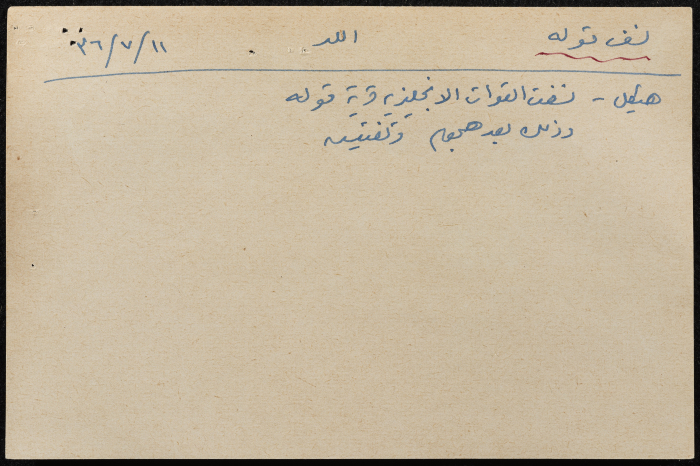 نسف قوله
اللد
١١/٧/٣٦
هيكل - نسفت القوات الانجليزيه قرية قوله
وذلك بعد هجوم وتفتيش